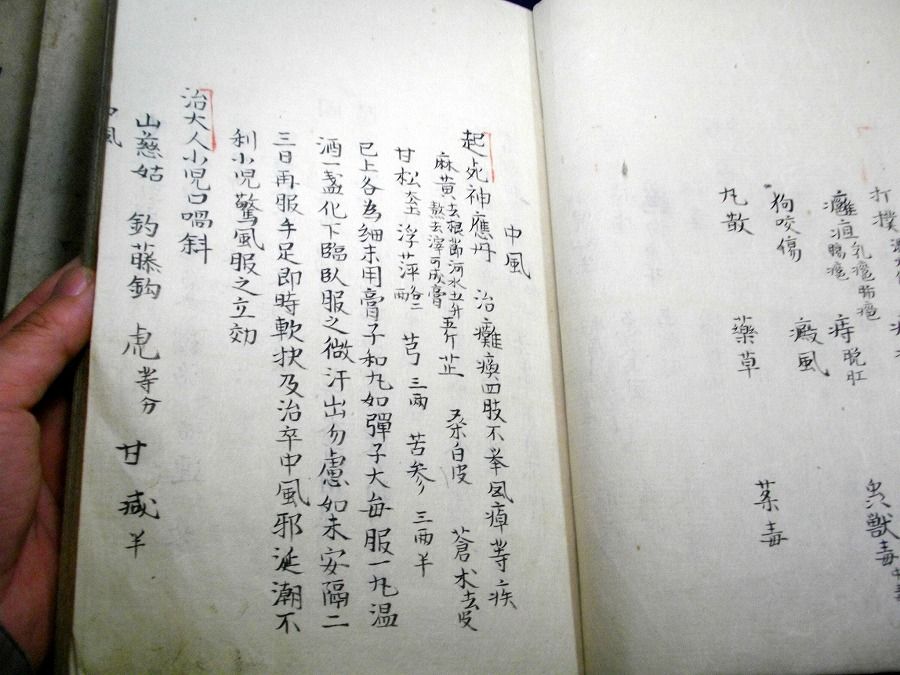 打撲
癰疽 乳癰 肺癰
腸癰 痔 脫肛
狗咬傷 癜風
丸散 藥草 菜毒
獸毒
中風
起死神應丹 治癱瘓四肢不举風痺等疾
麻黄去根節河水五升
熬去滓可成膏 五斤 芷 桑白皮 蒼术去皮
甘松 浮萍 芎三兩 苦参三兩半
已上各為細末用膏子和丸如彈子大每服一丸温
酒一盞化下臨臥服之微汗出勿慮如未安隔二
三日再服手足即時軟快及治卒中風邪涎潮不
利小児驚風服之立効
治大人小児口喎斜
山慈姑 釣藤鈎 等分 甘 减半
中風